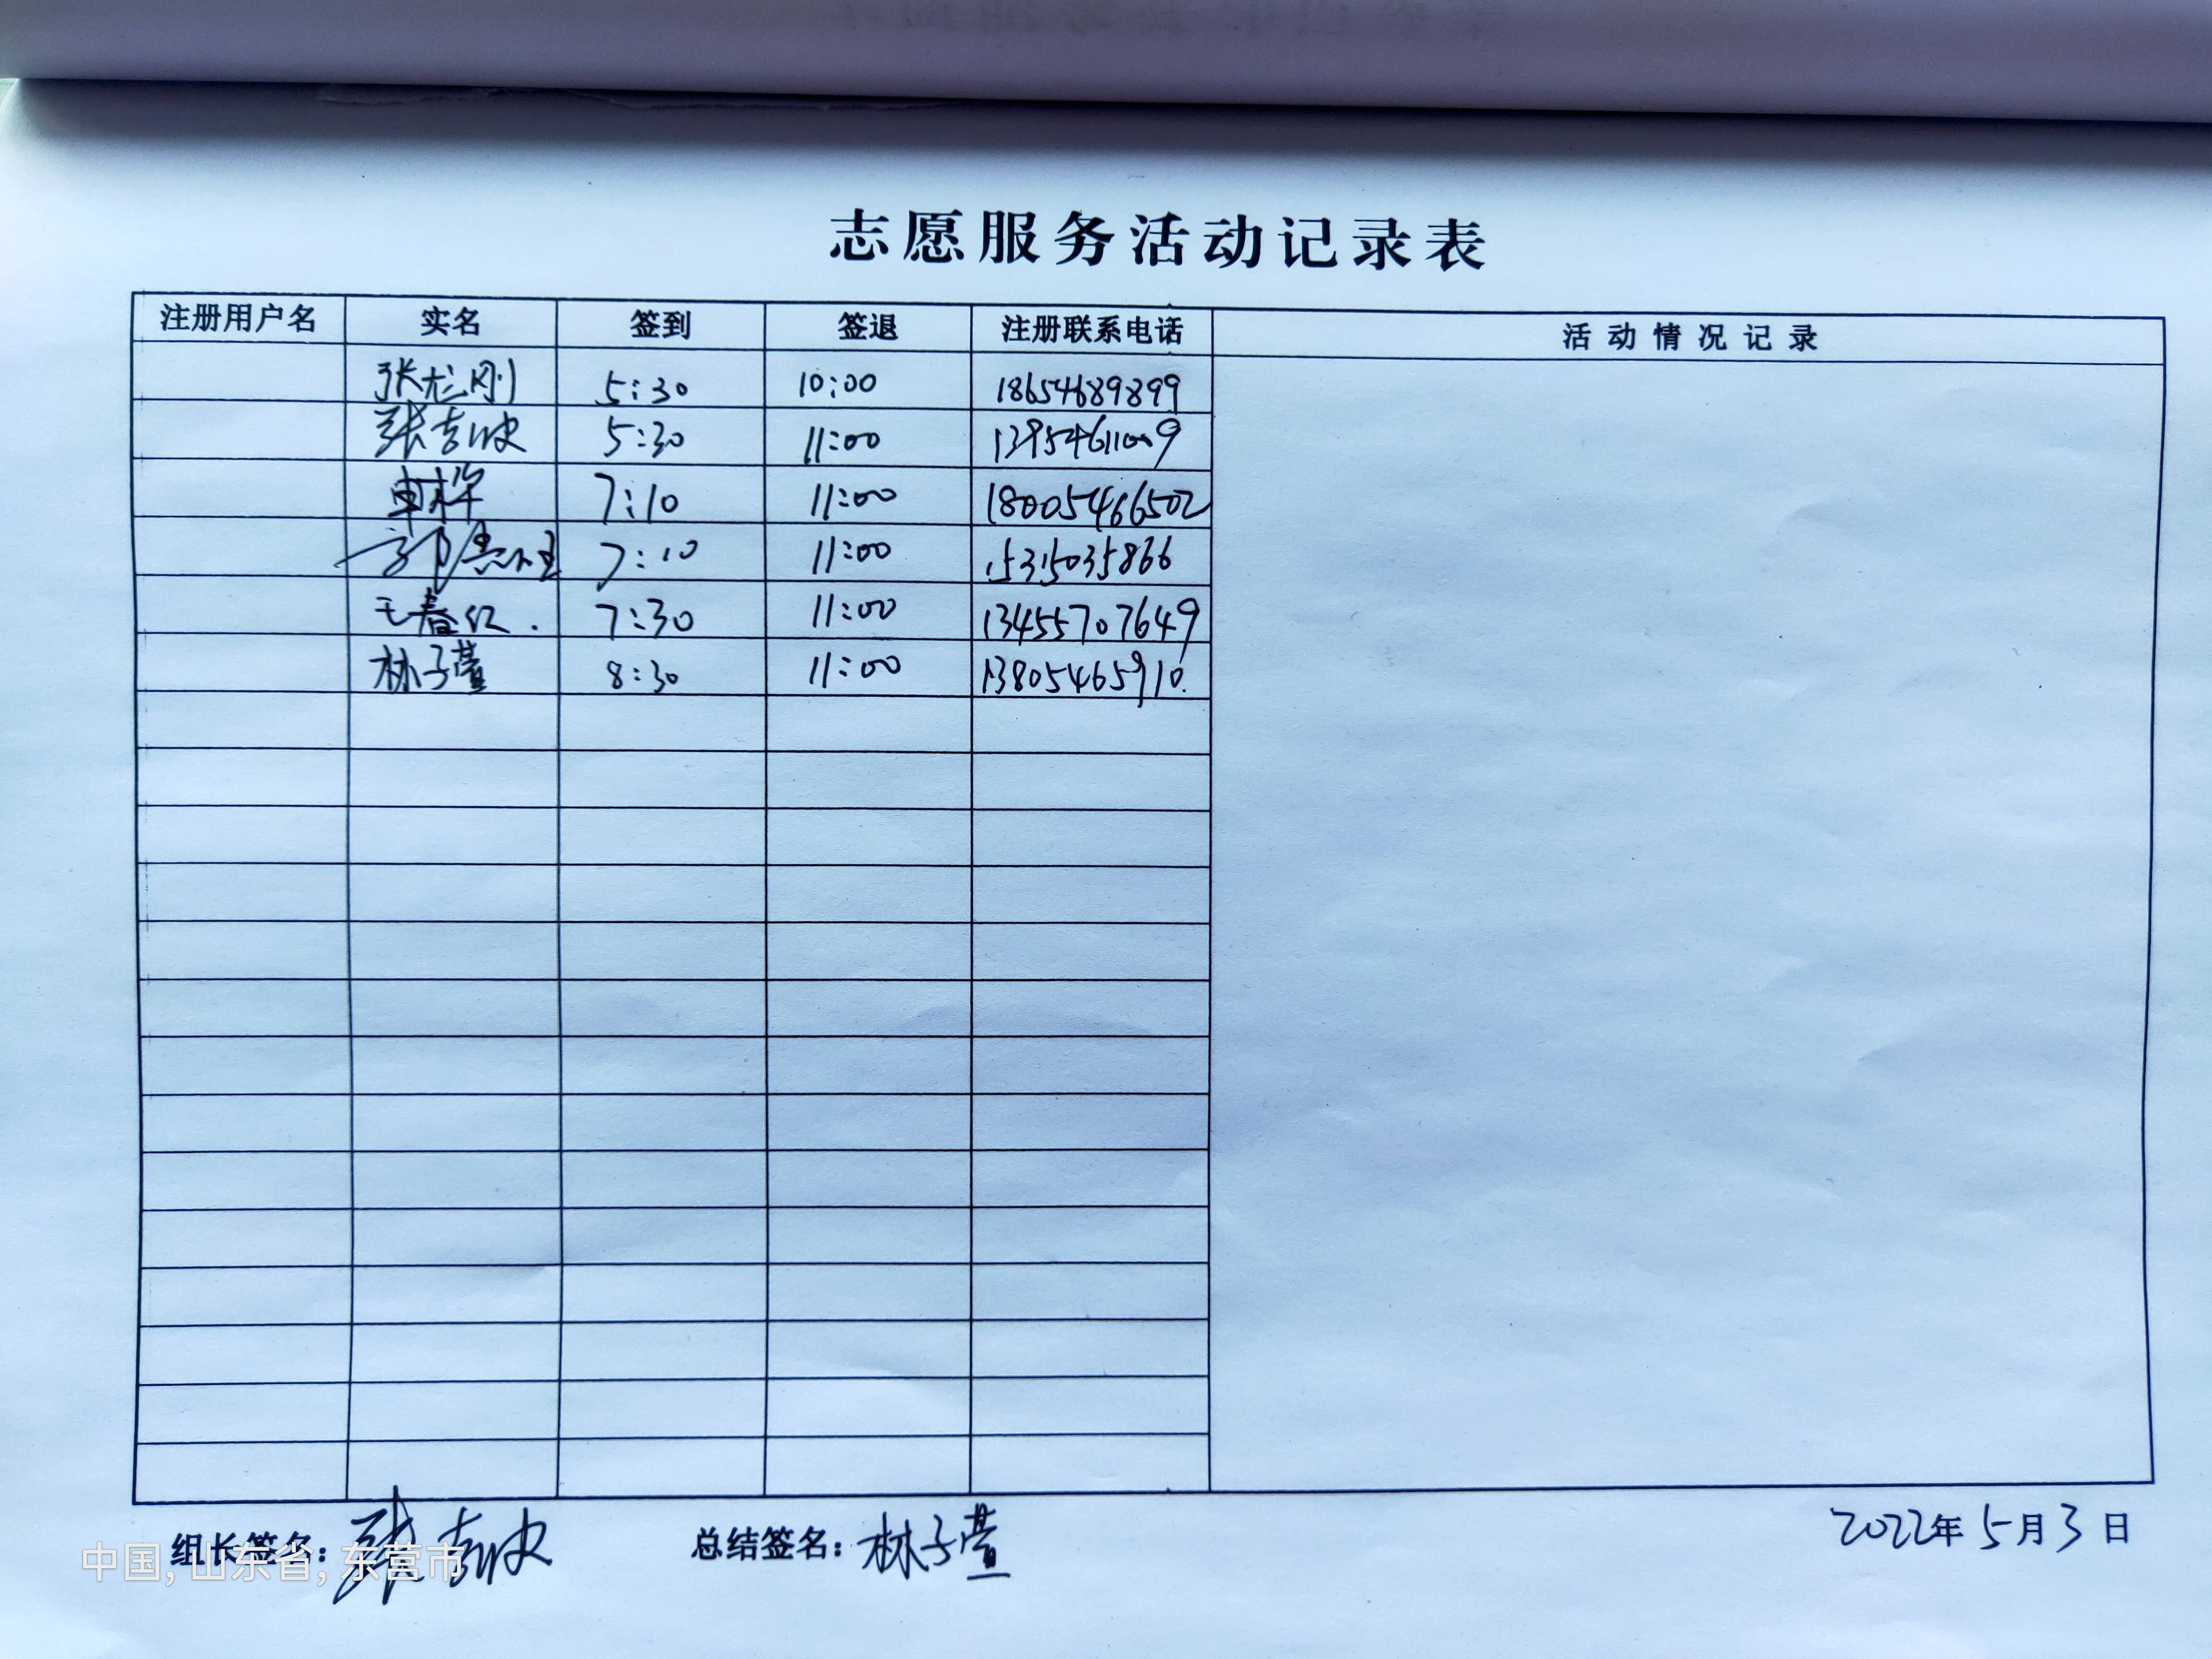 志愿服务活动记录表
注册用户名 实名 签到 签退 注册联系电话 活动情况记录
张龙刚 5:30 10:00 18654689899
张吉波 5:30 11:00 13954611009
7:10 11:00 18005466502
7:10 11:00
王春红 7:30 11:00 13455707649
林子萱 8:30 11:00 13805465910
组长签名: 张吉波 总结签名: 林子萱 2022年5月3日
中国, 山东省, 东营市